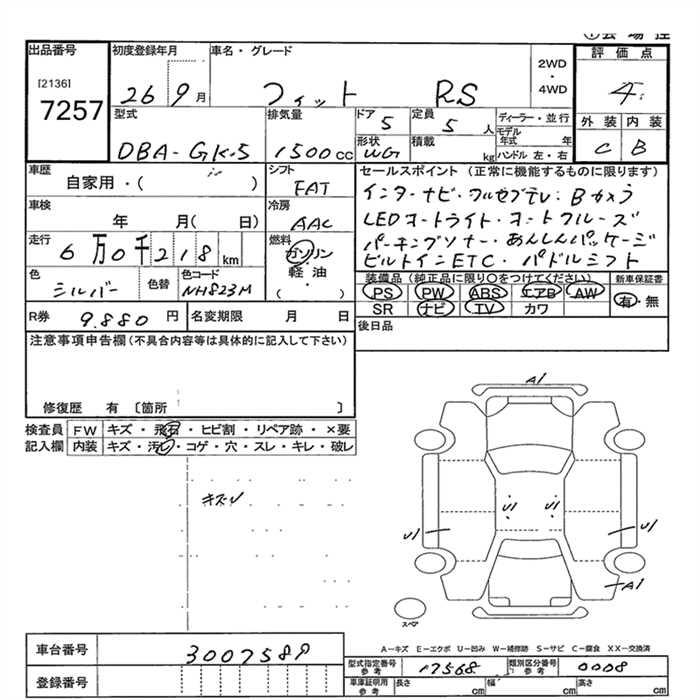 出品番号 初度登録年月 車名・グレード 2WD・4WD 評価点
[2136] 7257
26 9月 フィット RS 4
型式 排気量 ドア 5 定員 5人 ディーラー・並行 外装 内装
DBA-GK5 1500cc 形状 WG 積載 kg モデル年式 年 ハンドル 左・右 C B
車歴 シフト セールスポイント (正常に機能するものに限ります)
自家用・( ) FAT インターナビ・フルセグTV・Bカメラ
車検 冷房 LEDヘッドライト・オートクルーズ
年 月( 日) AAC パーキングソナー・あんしんパッケージ
走行 6万0千218km 燃料 ガソリン・軽油・( ) ビルトインETC・パドルシフト
色 色替 色コード 装備品 (純正品に限り○をつけてください) 新車保証書
シルバー NH823M PS PW ABS エアB AW 有・無
SR ナビ TV カワ
R券 9.880円 名変期限 月 日 後日品
注意事項申告欄(不具合内容等は具体的に記入して下さい)
修復歴 有 〔箇所 〕
検査員 FW キズ・飛石・ヒビ割・リペア跡・×要
記入欄 内装 キズ・汚レ・コゲ・穴・スレ・キレ・破レ
A1
キズU
U1 U1
U1 U1
A1
スペア
A-キズ E-エクボ U-凹み W-補修跡 S-サビ C-腐食 XX-交換済
車台番号 3007589
型式指定番号 参考 17568 類別区分番号 参考 0008
登録番号 車庫証明用 参考 長さ cm 幅 cm 高さ cm